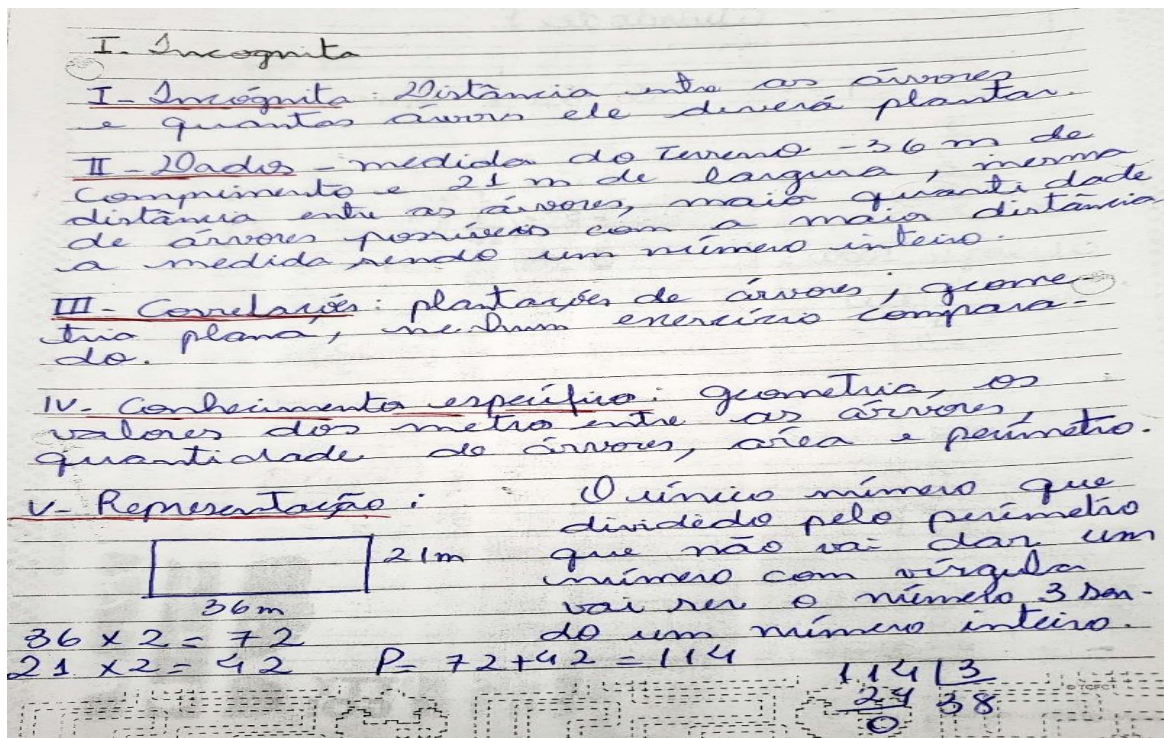 I- Incognita
I- Incógnita: Distância entre as árvores
e quantas árvores ele deverá plantar.
II- Dados - medida do Terreno - 36 m de
comprimento e 21 m de largura, mesma
distância entre as árvores, maior quantidade
de árvores possíveis com a maior distância
a medida sendo um número inteiro.
III- Correlações: plantações de árvores, geome-
tria plana, nenhum exercício compara-
do.
IV- Conhecimento específico: geometria, os
valores dos metro entre as árvores,
quantidade de árvores, área e perímetro.
V- Representação:
21m
36m
36 x 2 = 72
21 x 2 = 42
P= 72+42 = 114
O único número que
dividido pelo perímetro
que não vai dar um
número com vírgula
vai ser o número 3 sen-
do um número inteiro.
114 3
24 38
0